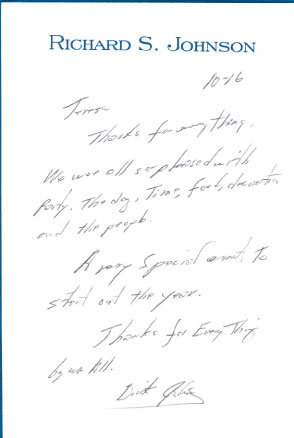 RICHARD S. JOHNSON
10-16
Teresa
Thanks for everything.
We were all so pleased with
Party. The day, Time, food, decoration
and the people.
A very Special event to
start out the year.
Thanks for EveryThing
by we All.
Dick Johnson